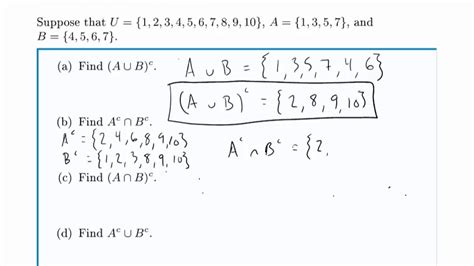 Suppose that U = {1, 2, 3, 4, 5, 6, 7, 8, 9, 10}, A = {1, 3, 5, 7}, and
B = {4, 5, 6, 7}.
(a) Find (A ∪ B)ᶜ.
A ∪ B = {1, 3, 5, 7, 4, 6}
(A ∪ B)ᶜ = {2, 8, 9, 10}
(b) Find Aᶜ ∩ Bᶜ.
Aᶜ = {2, 4, 6, 8, 9, 10}
Bᶜ = {1, 2, 3, 8, 9, 10}
Aᶜ ∩ Bᶜ = {2,
(c) Find (A ∩ B)ᶜ.
(d) Find Aᶜ ∪ Bᶜ.